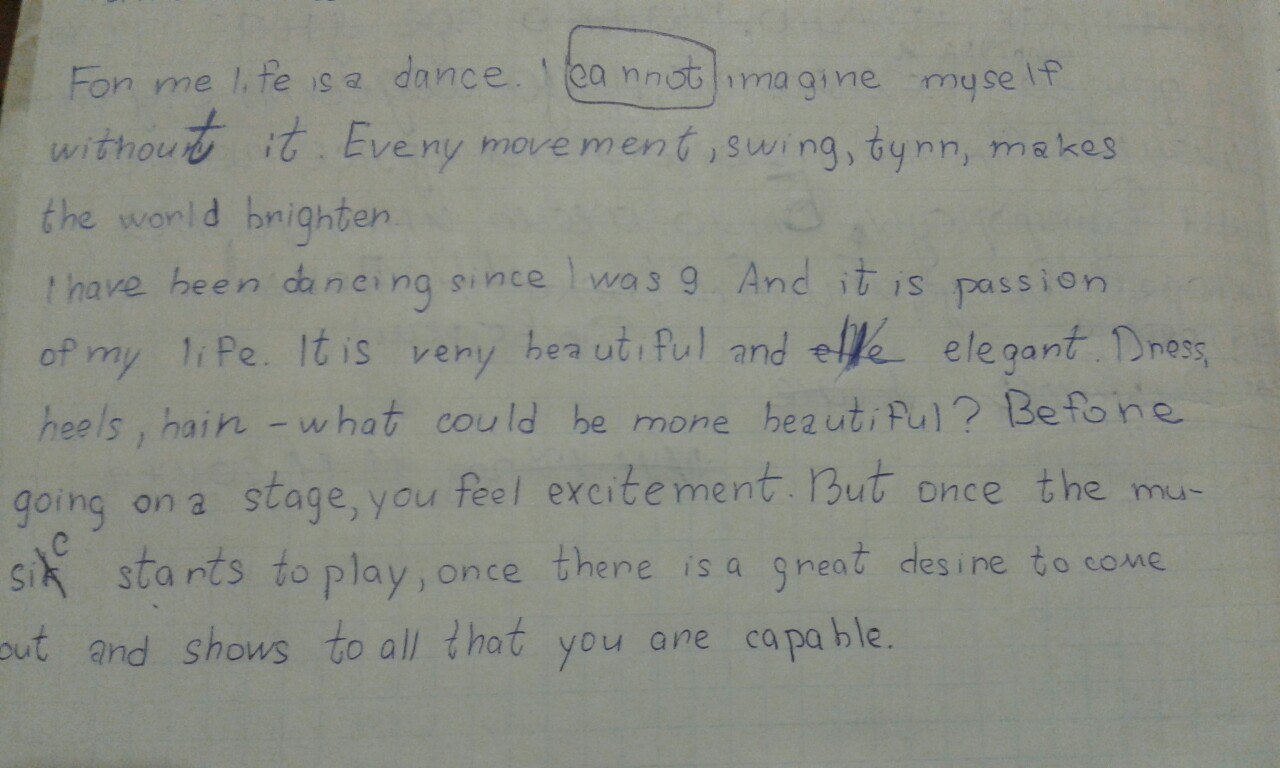 For me life is a dance. I cannot imagine myself
without it. Every movement, swing, tyrn, makes
the world brighter.
I have been dancing since I was 9. And it is passion
of my life. It is very beautiful and elegant. Dress,
heels, hair – what could be more beautiful? Before
going on a stage, you feel excitement. But once the mu-
sic starts to play, once there is a great desire to come
out and shows to all that you are capable.